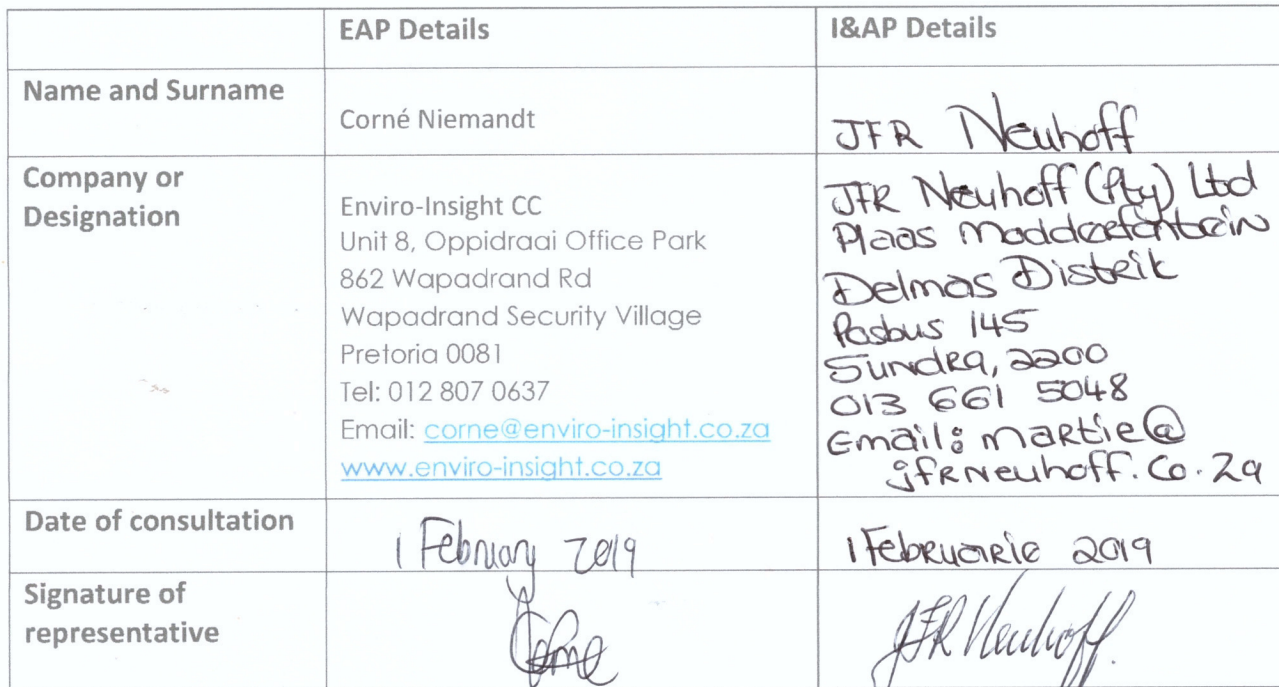 EAP Details
I&AP Details
Name and Surname
Corné Niemandt
JFR Neuhoff
Company or
Designation
Enviro-Insight CC
Unit 8, Oppidraai Office Park
862 Wapadrand Rd
Wapadrand Security Village
Pretoria 0081
Tel: 012 807 0637
Email: corne@enviro-insight.co.za
www.enviro-insight.co.za
JFR Neuhoff (Pty) Ltd
Plaas Modderfontein
Delmas Distrik
Posbus 145
Sundra, 2200
013 661 5048
Email: martie@
jfrneuhoff.co.za
Date of consultation
1 February 2019
1 Februarie 2019
Signature of
representative
Corne
JFR Neuhoff.